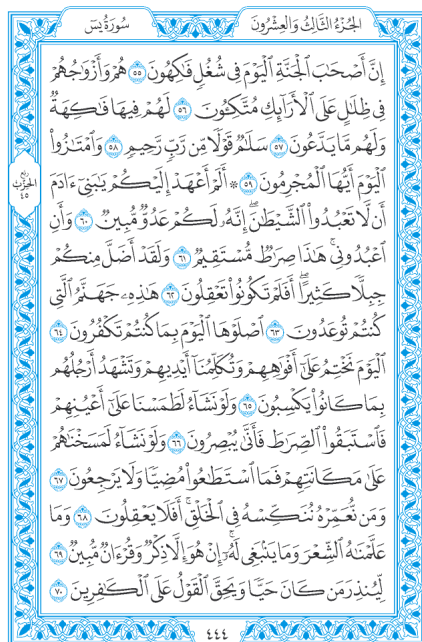 الجزء الثالث والعشرون
سورة يس
إِنَّ أَصْحَٰبَ ٱلْجَنَّةِ ٱلْيَوْمَ فِى شُغُلٍ فَٰكِهُونَ ٥٥ هُمْ وَأَزْوَٰجُهُمْ
فِى ظِلَٰلٍ عَلَى ٱلْأَرَآئِكِ مُتَّكِـُٔونَ ٥٦ لَهُمْ فِيهَا فَٰكِهَةٌ
وَلَهُم مَّا يَدَّعُونَ ٥٧ سَلَٰمٌ قَوْلًا مِّن رَّبٍّ رَّحِيمٍ ٥٨ وَٱمْتَٰزُوا۟
ٱلْيَوْمَ أَيُّهَا ٱلْمُجْرِمُونَ ٥٩ ۞ أَلَمْ أَعْهَدْ إِلَيْكُمْ يَٰبَنِىٓ ءَادَمَ
أَن لَّا تَعْبُدُوا۟ ٱلشَّيْطَٰنَ ۖ إِنَّهُۥ لَكُمْ عَدُوٌّ مُّبِينٌ ٦٠ وَأَنِ
ٱعْبُدُونِى ۚ هَٰذَا صِرَٰطٌ مُّسْتَقِيمٌ ٦١ وَلَقَدْ أَضَلَّ مِنكُمْ
جِبِلًّا كَثِيرًا ۖ أَفَلَمْ تَكُونُوا۟ تَعْقِلُونَ ٦٢ هَٰذِهِۦ جَهَنَّمُ ٱلَّتِى
كُنتُمْ تُوعَدُونَ ٦٣ ٱصْلَوْهَا ٱلْيَوْمَ بِمَا كُنتُمْ تَكْفُرُونَ ٦٤
ٱلْيَوْمَ نَخْتِمُ عَلَىٰٓ أَفْوَٰهِهِمْ وَتُكَلِّمُنَآ أَيْدِيهِمْ وَتَشْهَدُ أَرْجُلُهُم
بِمَا كَانُوا۟ يَكْسِبُونَ ٦٥ وَلَوْ نَشَآءُ لَطَمَسْنَا عَلَىٰٓ أَعْيُنِهِمْ
فَٱسْتَبَقُوا۟ ٱلصِّرَٰطَ فَأَنَّىٰ يُبْصِرُونَ ٦٦ وَلَوْ نَشَآءُ لَمَسَخْنَٰهُمْ
عَلَىٰ مَكَانَتِهِمْ فَمَا ٱسْتَطَٰعُوا۟ مُضِيًّا وَلَا يَرْجِعُونَ ٦٧
وَمَن نُّعَمِّرْهُ نُنَكِّسْهُ فِى ٱلْخَلْقِ ۖ أَفَلَا يَعْقِلُونَ ٦٨ وَمَا
عَلَّمْنَٰهُ ٱلشِّعْرَ وَمَا يَنۢبَغِى لَهُۥٓ ۚ إِنْ هُوَ إِلَّا ذِكْرٌ وَقُرْءَانٌ مُّبِينٌ ٦٩
لِّيُنذِرَ مَن كَانَ حَيًّا وَيَحِقَّ ٱلْقَوْلُ عَلَى ٱلْكَٰفِرِينَ ٧٠
ربع
الحزب
٤٥
٤٤٤